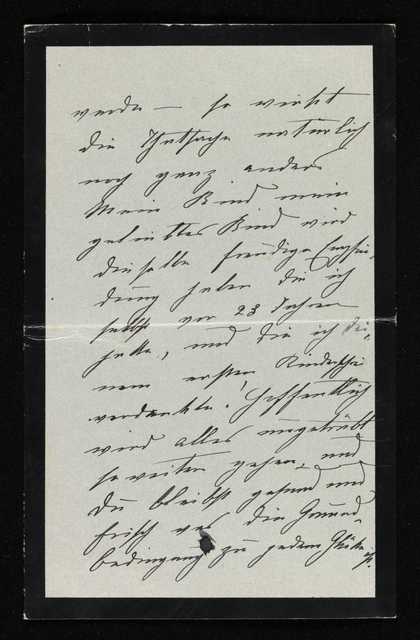 werde — so wirkt
die Thatsache natürlich
noch ganz anders
Mein Kind mein
geliebtes Kind wird
dieselbe freudige Empfin-
dung haben die ich
selbst vor 28 Jahren
hatte, und die ich Dei-
nem ersten
verdankte! Hoffentlich
wird alles ungetrübt
so weiter gehen, und
Du bleibst gesund und
frisch was die Grund-
bedingung zu jedem Glücke ist.